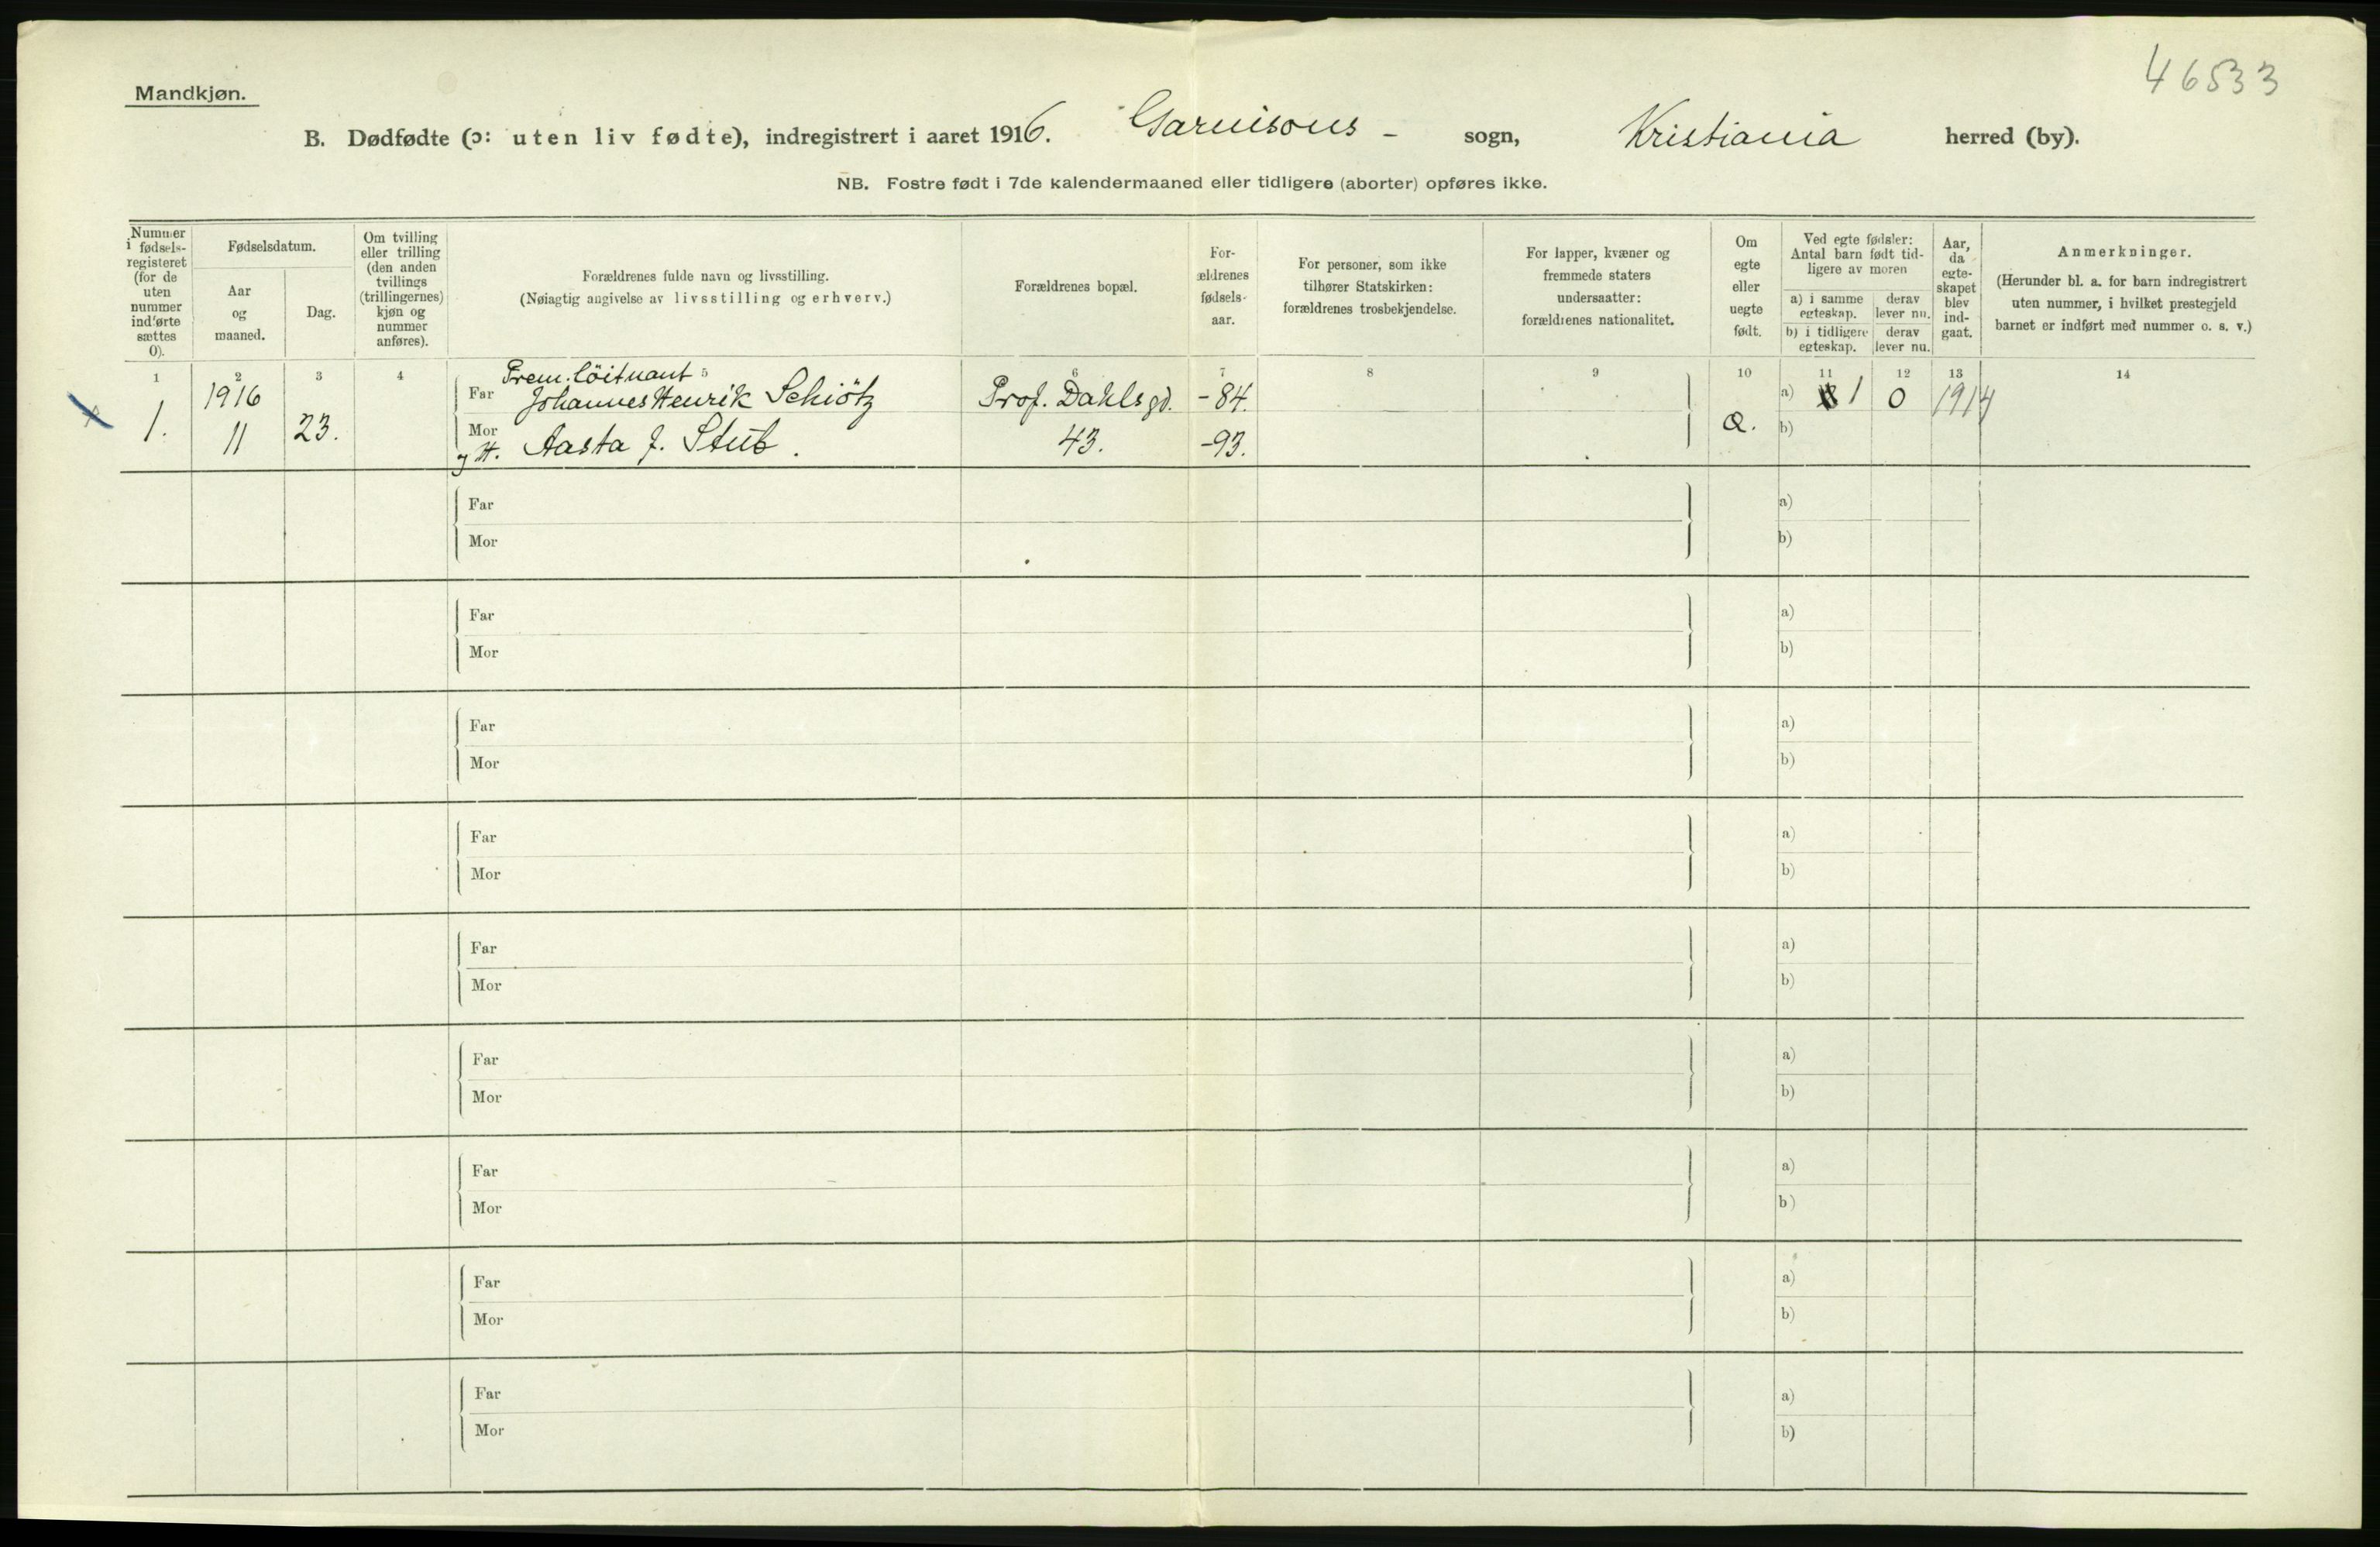 46533
Mandkjøn.
B. Dødfødte (ɔ: uten liv fødte), indregistrert i aaret 1916. Garnisons - sogn, Kristiania herred (by).
NB. Fostre født i 7de kalendermaaned eller tidligere (aborter) opføres ikke.
Nummer i fødsels-registeret (for de uten nummer indførte sættes 0).
Fødselsdatum.
Aar og maaned.
Dag.
Om tvilling eller trilling (den anden tvillings (trillingernes) kjøn og nummer anføres).
Forældrenes fulde navn og livsstilling.
(Nøiagtig angivelse av livsstilling og erhverv.)
Forældrenes bopæl.
For-ældrenes fødsels-aar.
For personer, som ikke tilhører Statskirken: forældrenes trosbekjendelse.
For lapper, kvæner og fremmede staters undersaatter: forældrenes nationalitet.
Om egte eller uegte født.
Ved egte fødsler: Antal barn født tid-ligere av moren
a) i samme egteskap.
derav lever nu.
b) i tidligere egteskap.
derav lever nu.
Aar, da egte-skapet blev ind-gaat.
Anmerkninger.
(Herunder bl. a. for barn indregistrert uten nummer, i hvilket prestegjeld barnet er indført med nummer o. s. v.)
1 2 3 4 5 6 7 8 9 10 11 12 13 14
Prem. löitnant
1916 Far Johannes Henrik Schiötz Prof. Dahls gd. -84. a) 1 0 1914
1. 11 23. Mor Aasta J. Stub. 43. -93. b)
Far a)
Mor b)
Far a)
Mor b)
Far a)
Mor b)
Far a)
Mor b)
Far a)
Mor b)
Far a)
Mor b)
Far a)
Mor b)
Far a)
Mor b)
Far a)
Mor b)